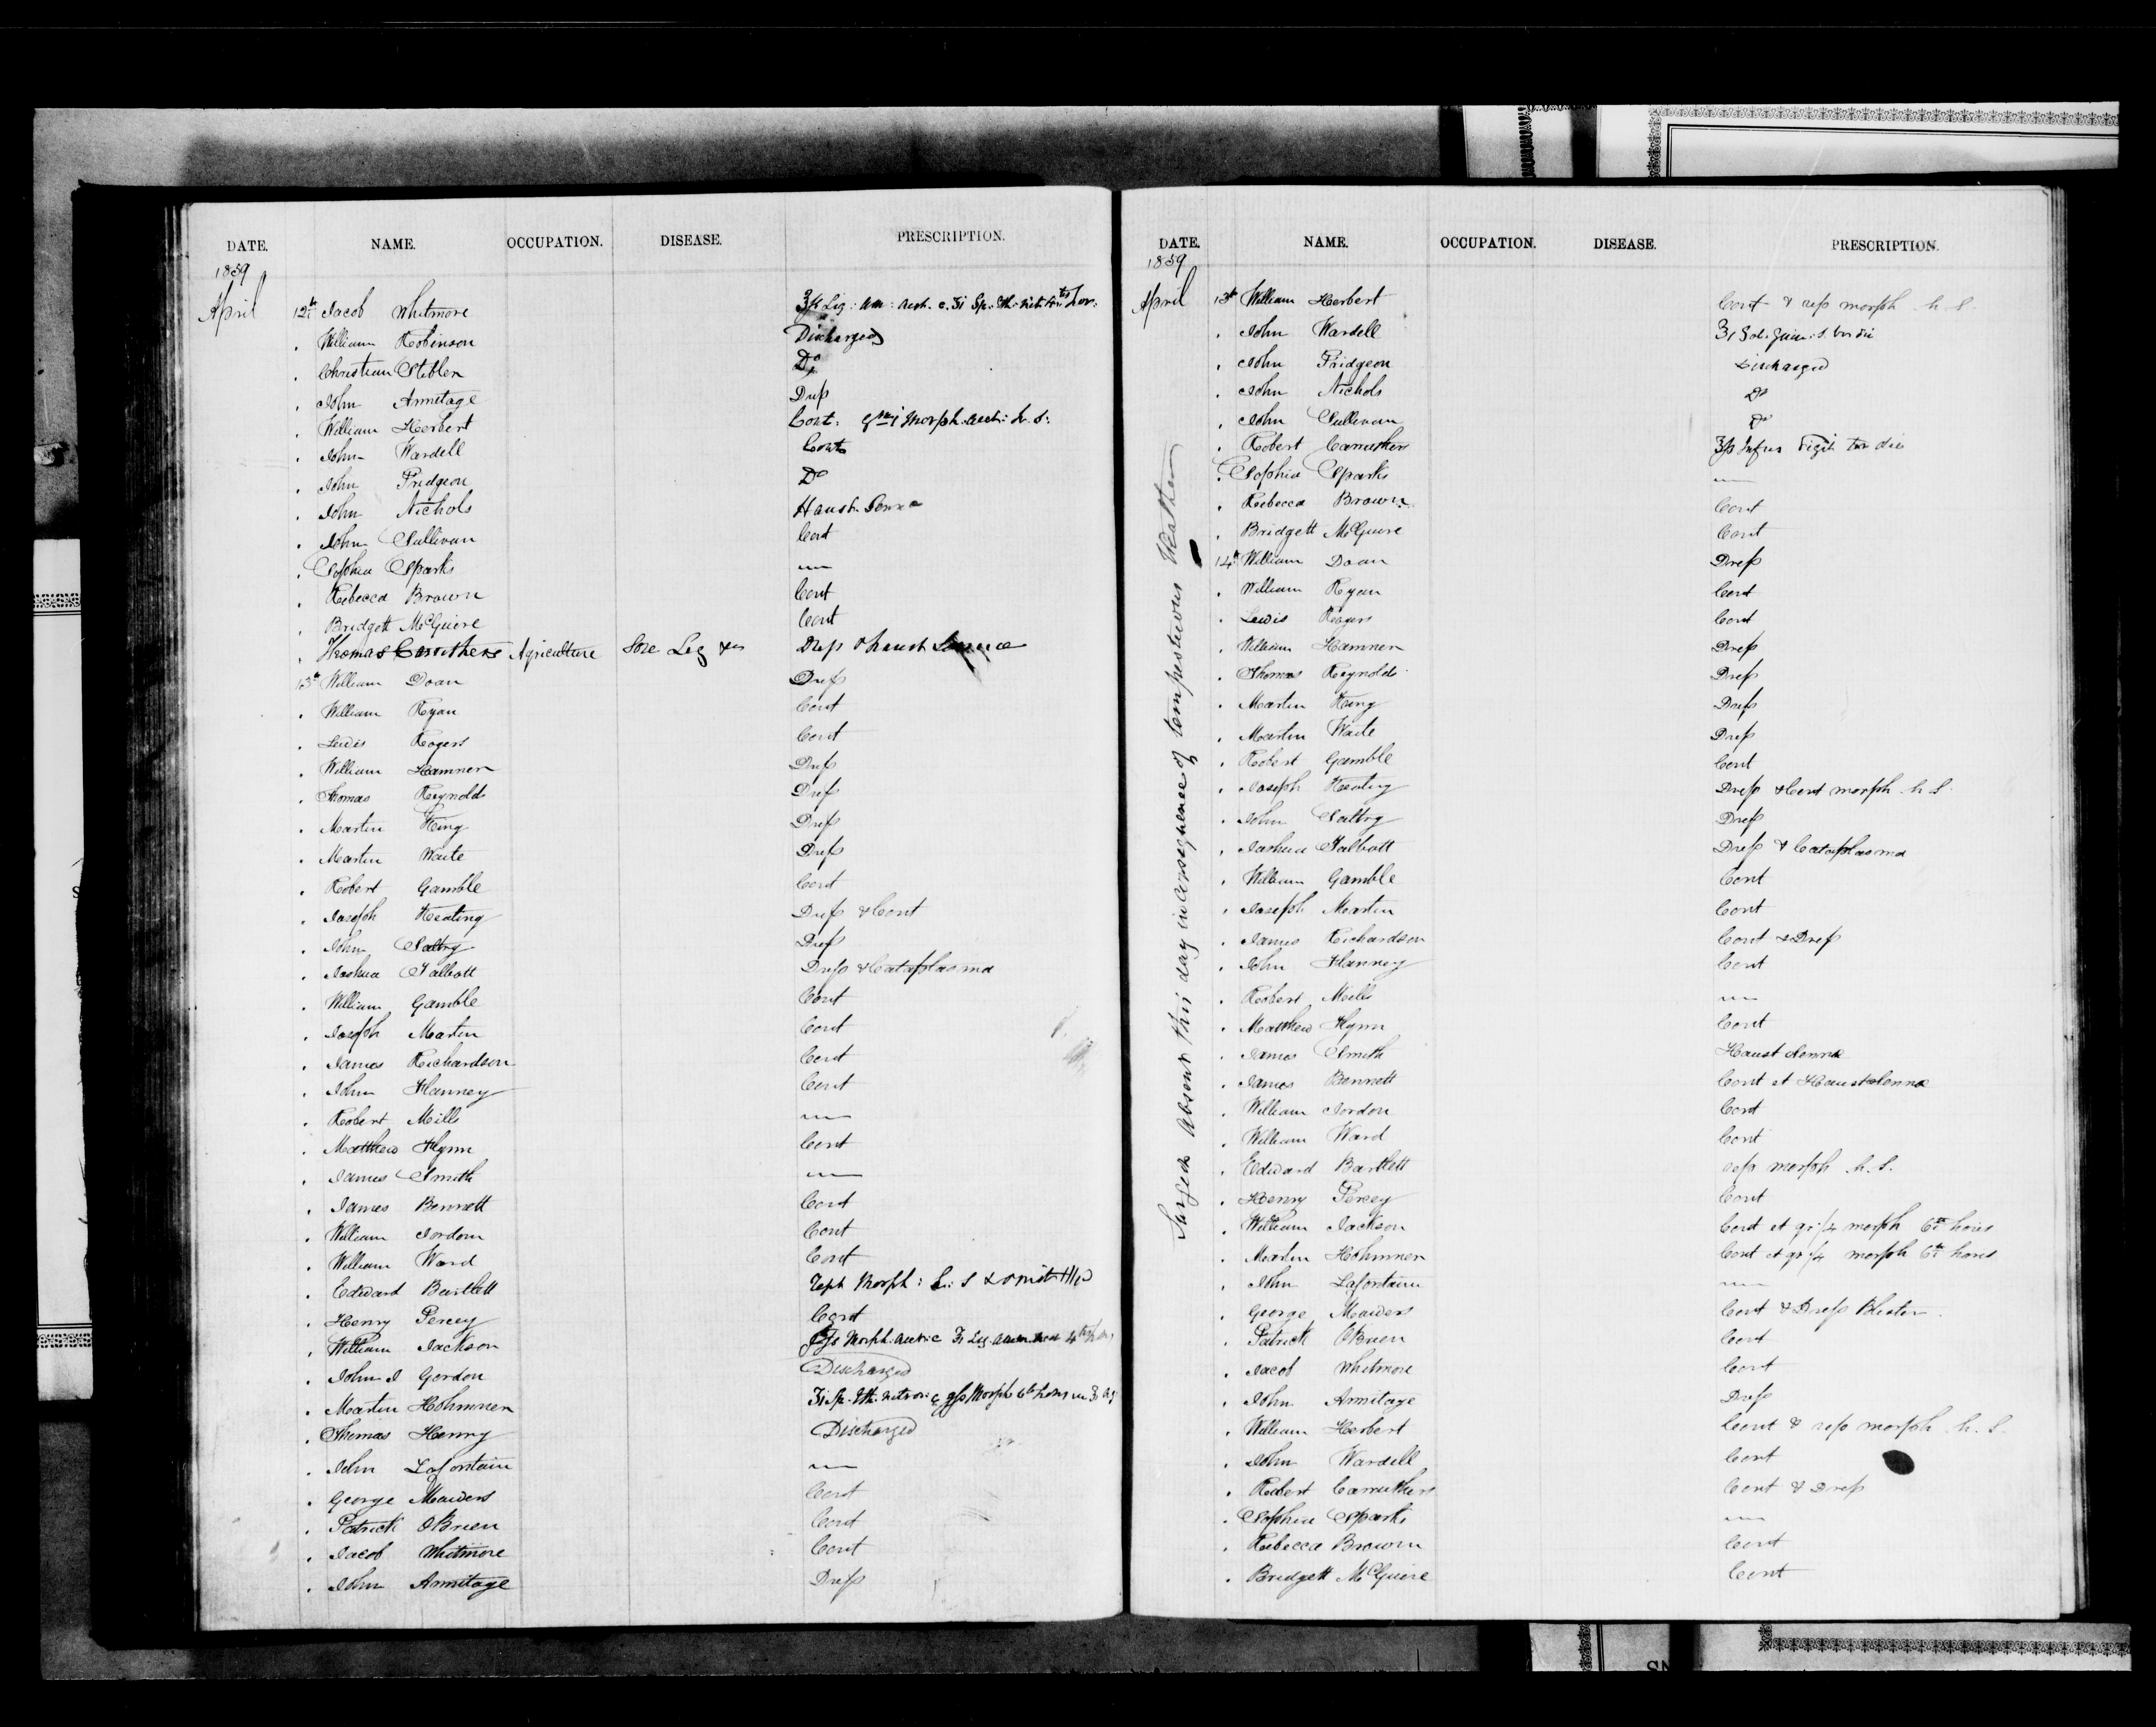 DATE. NAME. OCCUPATION. DISEASE. PRESCRIPTION.
1859
April 12th Jacob Whitmore
William Robinson Discharged
Christian Stebler Do
John Armitage Dress
William Herbert Cont: Morph. acet: h. s.
John Wardell Cont
John Pridgeon Do
John Nichols Haust. Senna
John Sullivan Cont
Sophia Sparks
Rebecca Brown Cont
Bridgett McGuire Cont
Thomas Carrothers Agriculture Sore Leg Dress & haust Senna
13th William Doan Dress
William Ryan Cont
Lewis Rogers Cont
William Hamner Dress
Thomas Reynolds Dress
Martin King Dress
Martin Waite Dress
Robert Gamble Cont
Joseph Keating Dress & Cont
John Saltry Dress
Joshua Talbott Dress & Cataplasma
William Gamble Cont
Joseph Martin Cont
James Richardson Cont
John Hanney Cont
Robert Mills
Matthew Flynn Cont
James Smith
James Bennett Cont
William Jordon Cont
William Ward Cont
Edward Bartlett Morph: h: s
Henry Percey Cont
William Jackson
John J Gordon Discharged
Martin Hohmner
Thomas Henry Discharged
John Lafontain
George Maiders Cont
Patrick OBrien Cont
Jacob Whitmore Cont
John Armitage Dress
DATE. NAME. OCCUPATION. DISEASE. PRESCRIPTION.
1859
April 13th William Herbert Cont & rep morph h. s.
John Wardell
John Pridgeon Discharged
John Nichols Do
John Sullivan Do
Robert Carruthers Infus Digit ter die
Sophia Sparks
Rebecca Brown Cont
Bridgett McGuire Cont
Surgeon absent this day in consequence of tempestuous Weather
14th William Doan Dress
William Ryan Cont
Lewis Rogers Cont
William Hamner Dress
Thomas Reynolds Dress
Martin King Dress
Martin Waite Dress
Robert Gamble Cont
Joseph Keating Dress & Cont morph h s.
John Saltry Dress
Joshua Talbott Dress & Cataplasma
William Gamble Cont
Joseph Martin Cont
James Richardson Cont & Dress
John Hanney Cont
Robert Mills
Matthew Flynn Cont
James Smith Haust Senna
James Bennett Cont et Haust Senna
William Jordon Cont
William Ward Cont
Edward Bartlett rep morph h. s.
Henry Percey Cont
William Jackson Cont et gr 1/4 morph 6tis horis
Martin Hohmner Cont et gr 1/4 morph 6tis horis
John Lafontain
George Maiders Cont & Dress Blister
Patrick OBrien Cont
Jacob Whitmore Cont
John Armitage Dress
William Herbert Cont & rep morph h. s.
John Wardell Cont
Robert Carruthers Cont & Dress
Sophia Sparks
Rebecca Brown Cont
Bridgett McGuire Cont